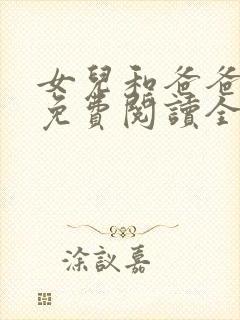 女兒和爸爸
免費閱讀全
涂議嘉